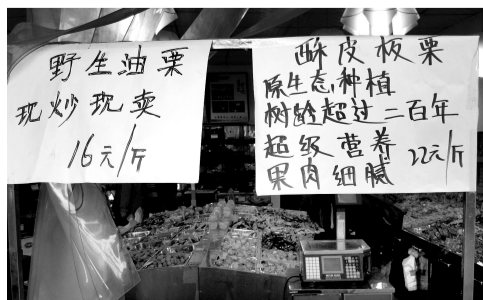 野生油栗
现炒现卖
16元/斤
酥皮板栗
原生态,种植
树龄超过二百年
超级营养
果肉细腻 22元/斤